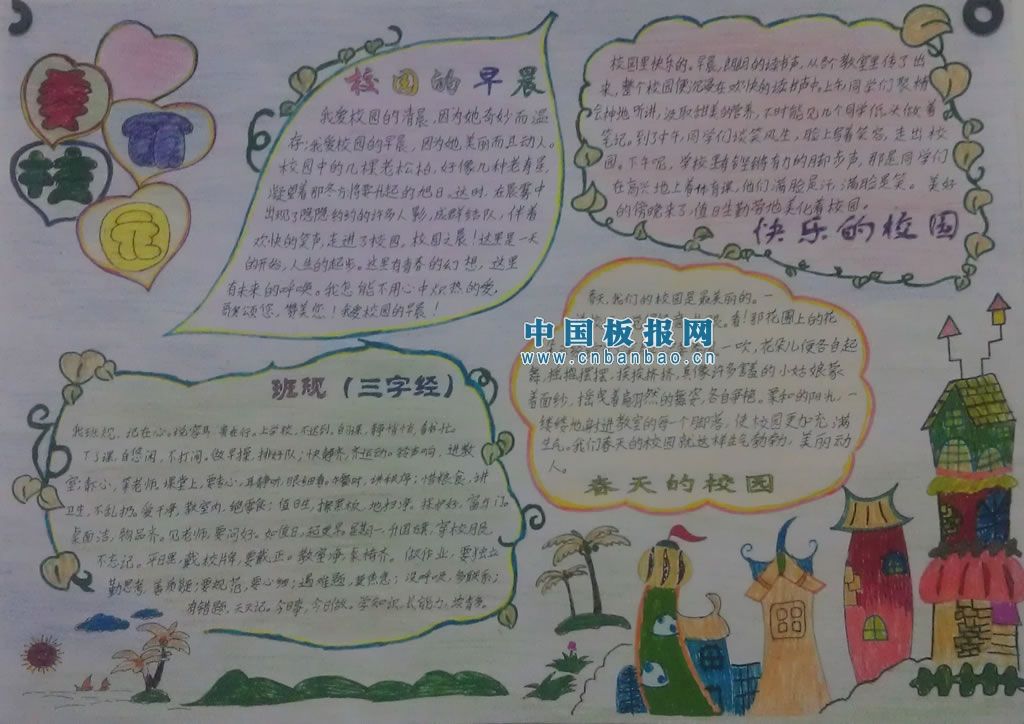 美
丽
校
园
校园的早晨
我爱校园的清晨,因为她奇妙而温
存;我爱校园的早晨,因为她美丽而且动人。
校园中的几棵老松柏,好像几种老寿星,
凝望着那冬方将要升起的旭日。这时,在晨雾中
出现了隐隐约约的许多人影,成群结队,伴着
欢快的笑声,走进了校园。校园之晨!这里是一天
的开始,人生的起步。这里有青春的幻想,这里
有未来的呼唤。我怎能不用心中炽热的爱,
歌颂您,赞美您!我爱校园的早晨!
校园里快乐的。早晨,朗朗的读书声,从各个教室里传了出
来,整个校园便沉浸在欢快的读书声中。上午,同学们聚精
会神地听讲,汲取甜美的营养,不时能见几个同学低头做着
笔记。到了中午,同学们谈笑风生,脸上写着笑容,走出校
园。下午呢,学校里有铿锵有力的脚步声,那是同学们
在高兴地上着体育课,他们满脸是汗,满脸是笑。美好
的傍晚来了,值日生勤劳地美化着校园。
快乐的校园
春天,我们的校园是最美丽的。一
看!那花圃上的花
一吹,花朵儿便各自起
舞,摇摇摆摆,挨挨挤挤,真像许多害羞的小姑娘蒙
着面纱,摇曳着
的舞姿,各自争艳。柔和的阳光,一
缕缕地射进教室的每一个脚落,使校园更加充满
生气。我们春天的校园就这样生气勃勃,美丽动
人。
春天的校园
中国板报网
www.cnbanbao.cn
班规(三字经)
我班规,记在心。
贵在行。上学校,不迟到。自习课,静悄悄,
下了课,自悠闲,不打闹。做早操,排好队;快静齐,齐运动。铃声响,进教
室;静心,等老师。课堂上,要专心,耳静听,眼细看。
讲秩序;惜粮食,讲
卫生,不乱扔。爱干净,教室内,绝零食;值日生,擦黑板,地扫净。
桌面洁,物品齐。见老师,要问好。
星期一,升国旗,穿校服,
不忘记。平日里,戴校牌,要戴正。教室净,桌椅齐。做作业,要独立,
勤思考,善质疑;要规范,要心细;遇难题,莫焦急;没呼唤,多联系;
有错题,天天记。今日事,今日做。学知识,长能力,